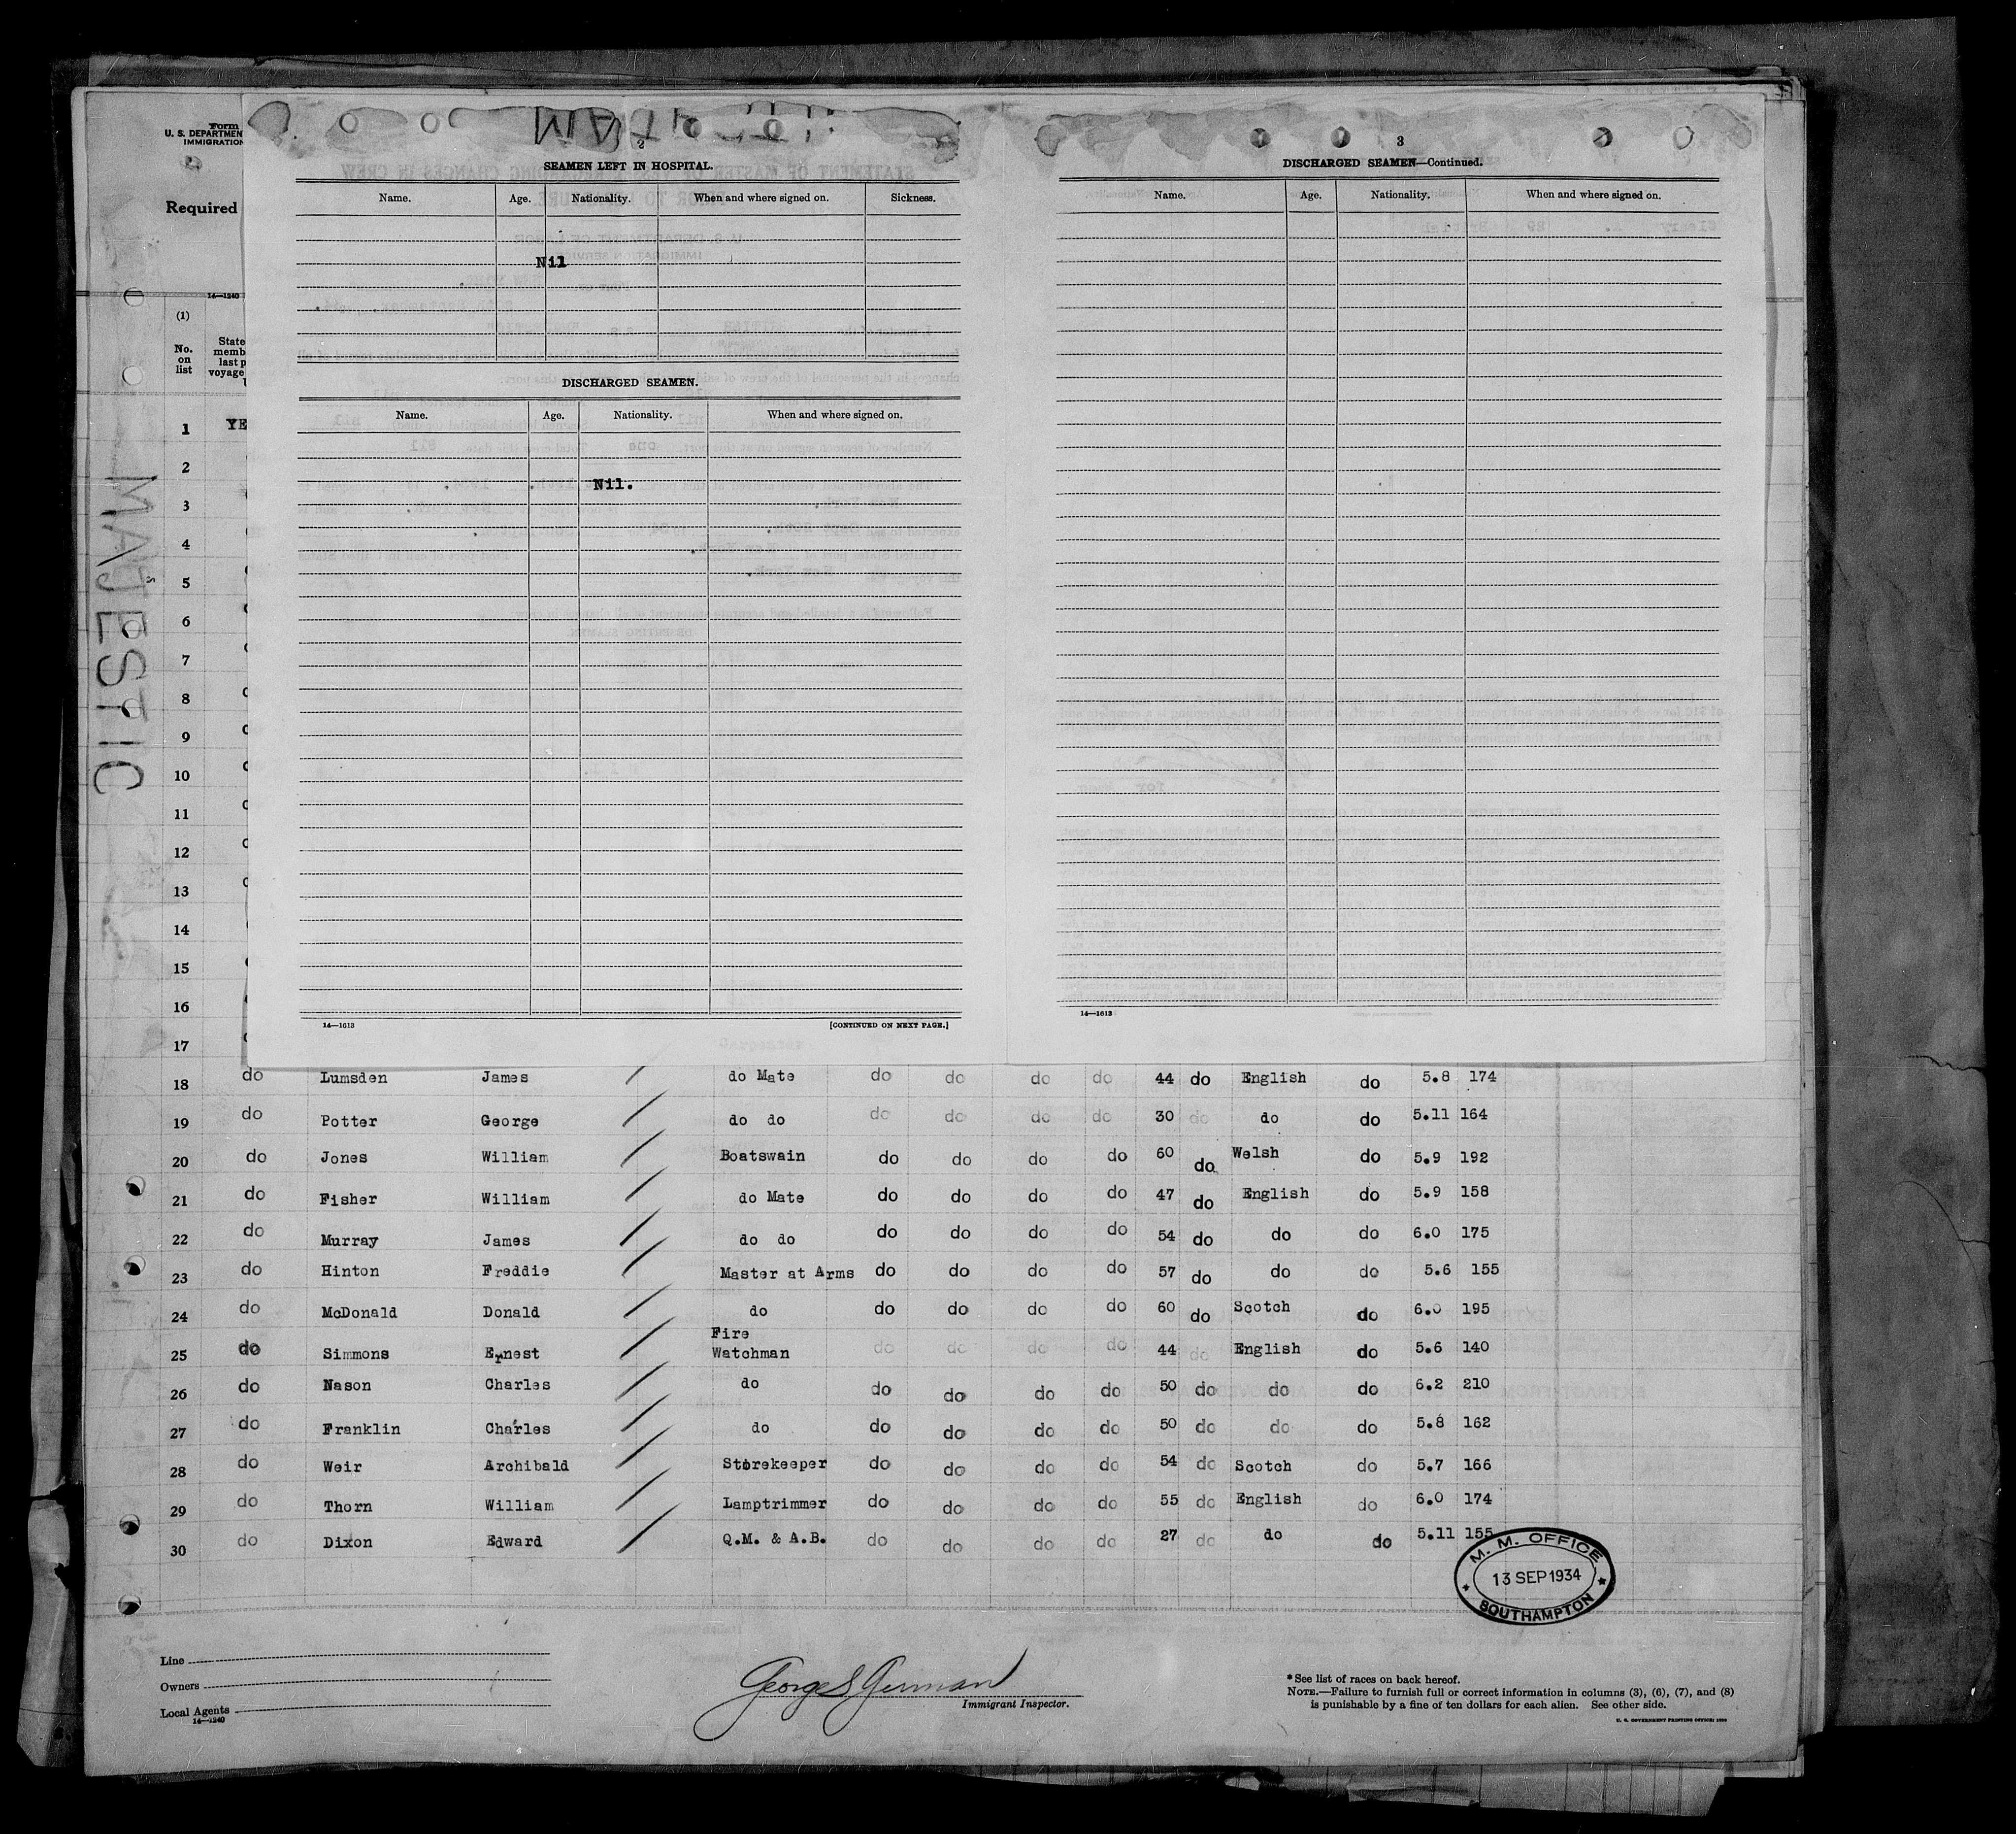 Form
U. S. DEPARTMEN
IMMIGRATION
Required
14—1240
(1)
No.
on
list
State
memb
last p
voyage
MAJESTIC
2
SEAMEN LEFT IN HOSPITAL.
Name. Age. Nationality. When and where signed on. Sickness.
Nil
DISCHARGED SEAMEN.
Name. Age. Nationality. When and where signed on.
Nil.
14—1613 [CONTINUED ON NEXT PAGE.]
3
DISCHARGED SEAMEN—Continued.
Name. Age. Nationality. When and where signed on.
14—1613
1 YE
2
3
4
5
6
7
8
9
10
11
12
13
14
15
16
17
18 do Lumsden James do Mate do do do do 44 do English do 5.8 174
19 do Potter George do do do do do do 30 do do do 5.11 164
20 do Jones William Boatswain do do do do 60 do Welsh do 5.9 192
21 do Fisher William do Mate do do do do 47 do English do 5.9 158
22 do Murray James do do do do do do 54 do do do 6.0 175
23 do Hinton Freddie Master at Arms do do do do 57 do do do 5.6 155
24 do McDonald Donald do do do do do 60 do Scotch do 6.0 195
25 do Simmons Ernest Fire Watchman do do do do 44 do English do 5.6 140
26 do Nason Charles do do do do do 50 do do do 6.2 210
27 do Franklin Charles do do do do do 50 do do do 5.8 162
28 do Weir Archibald Storekeeper do do do do 54 do Scotch do 5.7 166
29 do Thorn William Lamptrimmer do do do do 55 do English do 6.0 174
30 do Dixon Edward Q.M. & A.B. do do do do 27 do do do 5.11 155
M. M. OFFICE
13 SEP 1934
SOUTHAMPTON
Line
Owners
Local Agents
14—1240
George S German
Immigrant Inspector.
*See list of races on back hereof.
NOTE.—Failure to furnish full or correct information in columns (3), (6), (7), and (8)
is punishable by a fine of ten dollars for each alien. See other side.
U. S. GOVERNMENT PRINTING OFFICE: